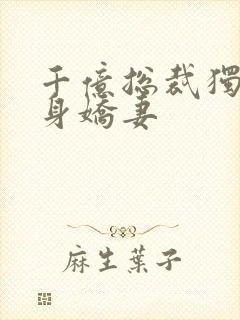 千億總裁獨
身嬌妻
麻生葉子